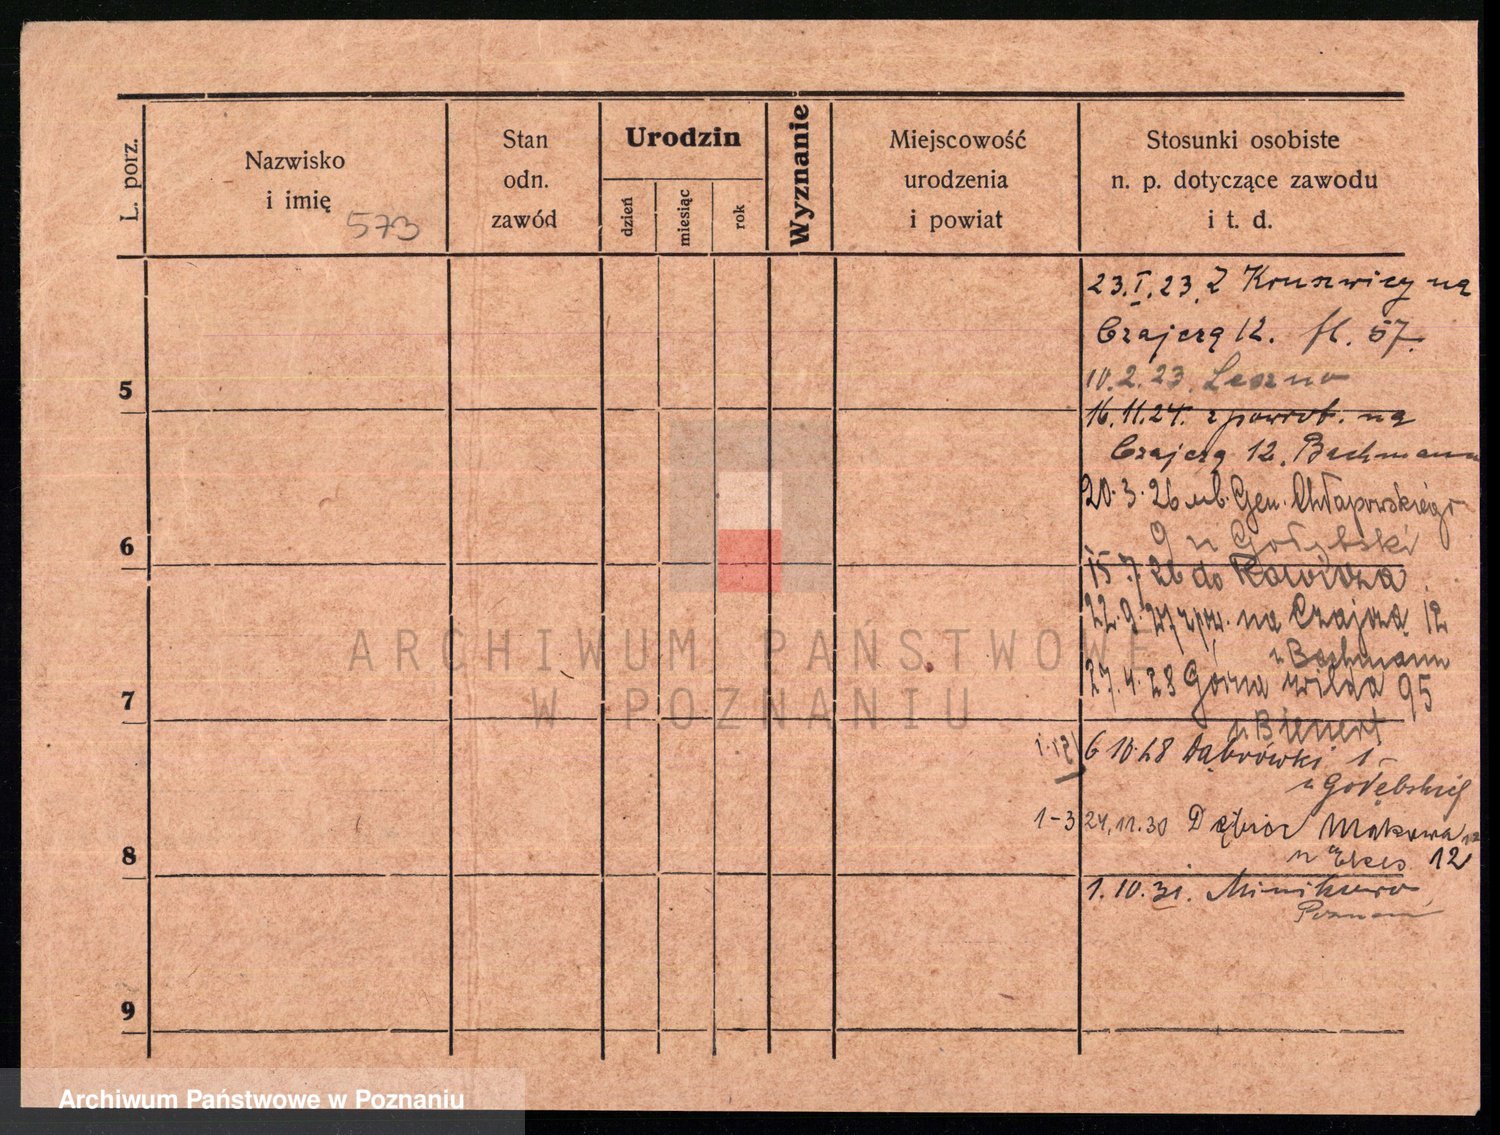 L. porz.
Nazwisko
i imię
573
Stan
odn.
zawód
Urodzin
dzień
miesiąc
rok
Wyznanie
Miejscowość
urodzenia
i powiat
Stosunki osobiste
n. p. dotyczące zawodu
i t. d.
23.I.23. Z Kruszwicy na
Czajczą 12. fl. 57.
10.2.23. Leszno
5
16.11.24. z powrot. na
Czajczą 12. Bachmann
20.3.26 Gen. Chłapowskiego
9 u Gołębski
6
15.7.26 do Rawicza
22.9.27 na Czajczą 12
u Bachmann
27.4.28 Górna wilda 95
7
u Bienert
6 10.28 Dąbrówki 1
u Gołębskiej
1-3 24.11.30 Dębiec Makowa
12
8
1.10.31. Minikowo
Poznań
9
ARCHIWUM PAŃSTWOWE
W POZNANIU
Archiwum Państwowe w Poznaniu